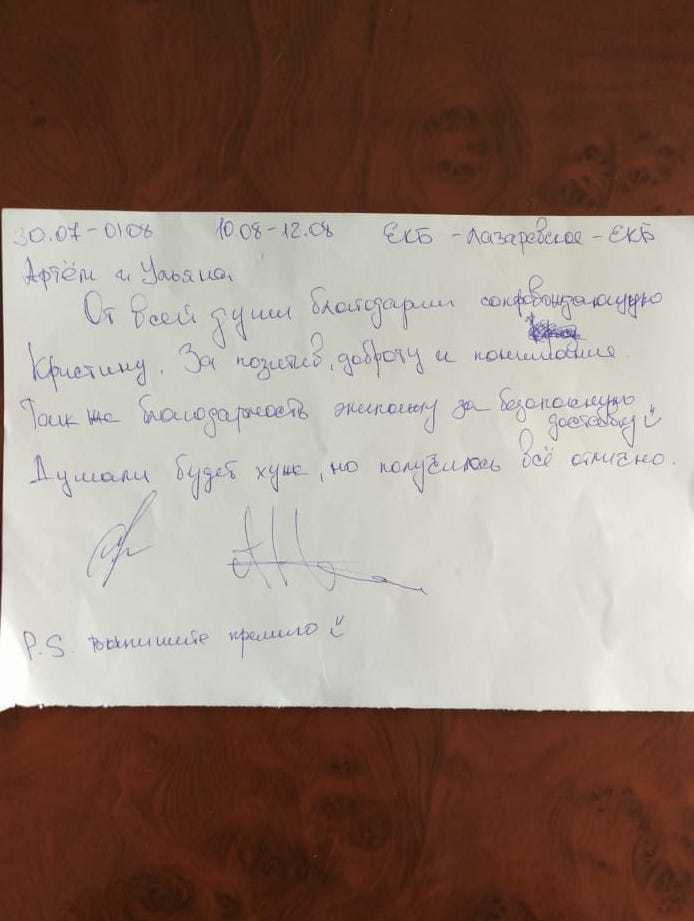 30.07-01.08 10.08-12.08 ЕКБ - Лазаревское - ЕКБ
Артём и Ульяна.
От всей души благодарим сопровождающую
Кристину. За позитив, доброту и понимание.
Так же благодарность экипажу за безопасную
доставку
Думали будет хуже, но получилось всё отлично.
P.S. выпишите премию